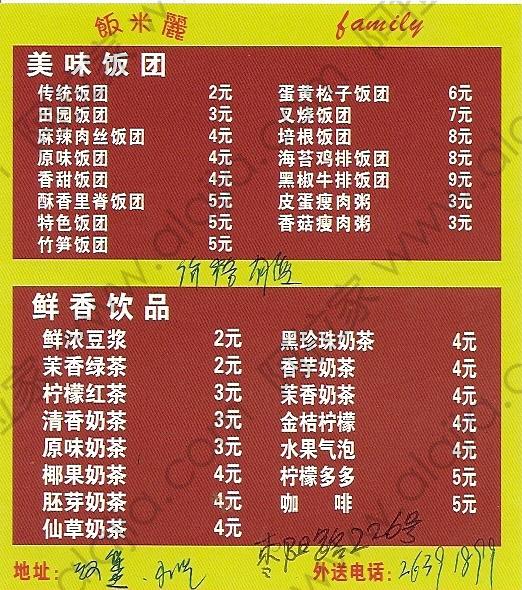 飯米麗 family
美味饭团
传统饭团 2元 蛋黄松子饭团 6元
田园饭团 3元 叉烧饭团 7元
麻辣肉丝饭团 4元 培根饭团 8元
原味饭团 4元 海苔鸡排饭团 8元
香甜饭团 4元 黑椒牛排饭团 9元
酥香里脊饭团 5元 皮蛋瘦肉粥 3元
特色饭团 5元 香菇瘦肉粥 3元
竹笋饭团 5元
鲜香饮品
鲜浓豆浆 2元 黑珍珠奶茶 4元
茉香绿茶 2元 香芋奶茶 4元
柠檬红茶 3元 茉香奶茶 4元
清香奶茶 3元 金桔柠檬 4元
原味奶茶 3元 水果气泡 4元
椰果奶茶 4元 柠檬多多 5元
胚芽奶茶 4元 咖 啡 5元
仙草奶茶 4元
226号
地址: 外送电话: 26391899